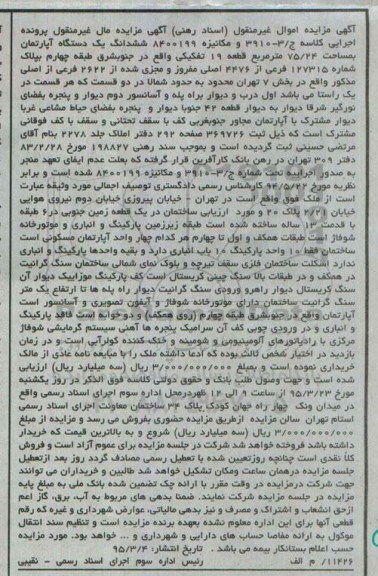 آگهی مزایده اموال غیرمنقول (اسناد رهنی) آگهی مزایده مال غیرمنقول پرونده
اجرایی کلاسه ج/۳۹۱۰-۳ و مکانیزه ۸۴۰۰۱۹۹ ششدانگ یک دستگاه آپارتمان
بمساحت ۷۵/۲۴ مترمربع قطعه ۱۹ تفکیکی واقع در جنوبشرق طبقه چهارم بپلاک
شماره ۱۲۷۳۱۵ فرعی از ۴۴۷۶ اصلی مفروز و مجزی شده از ۲۶۲۲ فرعی از اصلی
مذکور واقع در بخش ۷ تهران محدود به حدود شمالا در دو قسمت که هر قسمت در
یک راستا می باشد اول درب و دیوار براه پله و آسانسور دوم دیوار و پنجره بفضای
نورگیر شرقا دیوار به دیوار قطعه ۴۲ جنوبا دیوار و پنجره بفضای حیاط مشاعی غربا
دیوار مشترک با آپارتمان مجاور جنوبغربی کف با سقف تحتانی و سقف با کف فوقانی
مشترک است که ذیل ثبت ۳۶۹۷۲۶ صفحه ۲۹۲ دفتر املاک جلد ۲۲۷۸ بنام آقای
مرتضی حسینی ثبت گردیده است و بموجب سند رهنی ۱۹۸۸۲۷ مورخ ۸۳/۲/۲۸
دفتر ۳۰۹ تهران در رهن بانک کارآفرین قرار گرفته که بعلت عدم ایفای تعهد منجر
به صدور اجراییه تحت شماره ج/۳۹۱۰-۳ و مکانیزه ۸۴۰۰۱۹۹ شده است و برابر
نظریه مورخ ۹۴/۵/۲۲ کارشناس رسمی دادگستری توصیف اجمالی مورد وثیقه عبارت
است از ملک فوق واقع است در تهران - خیابان پیروزی خیابان دوم نیروی هوایی
خیابان ۲/۲۱ پلاک ۲۰ و مورد ارزیابی ساختمان در یک قطعه زمین جنوبی در ۶ طبقه
با قدمت ۱۲ ساله ساخته شده است طبقه زیرزمین پارکینگ و انباری و موتورخانه
شوفاژ است طبقات همکف و اول تا چهارم هر کدام چهار واحد آپارتمان مسکونی است
ساختمان فقط ۱۰ واحد پارکینگ ۱۰ باب انباری دارد و بقیه واحدها پارکینگ و انباری
ندارد اسکلت ساختمان فلزی سقف تیرچه و بلوک نمای شمالی ساختمان سنگ گرانیت
در همکف و در طبقات بالا سنگ چینی کریستال است کف پارکینگ موزاییک دیوار آن
سنگ کریستال دیوار راهرو ورودی سنگ گرانیت دیوار راه پله ها تا ارتفاع یک متر
سنگ گرانیت ساختمان دارای موتورخانه شوفاژ و آیفون تصویری و آسانسور است
آپارتمان واقع در جنوبشرق طبقه چهارم (روی همکف) و دو خوابه است فاقد پارکینگ
و انباری و در ورودی چوبی کف آن سرامیک پنجره ها آهنی سیستم گرمایشی شوفاژ
مرکزی با رادیاتورهای آلومینیومی و شومینه و خنک کننده کولرآبی است و در زمان
بازدید در اختیار شخص ثالث بوده که ادعا داشته ملک را با مبایعه نامه عادی از مالک
خریداری نموده است و بمبلغ ۳/۰۰۰/۰۰۰/۰۰۰ ریال (سه میلیارد ریال) ارزیابی
شده است و جهت وصول طلب بانک و حقوق دولتی کلاسه فوق الذکر در روز یکشنبه
مورخ ۹۵/۳/۲۳ از ساعت ۹ الی ۱۲ ظهر درمحل اداره سوم اجرای اسناد رسمی واقع
در میدان ونک چهار راه جهان کودک پلاک ۳۴ ساختمان معاونت اجرای اسناد رسمی
استام تهران سالن مزایده ازطریق مزایده حضوری بفروش می رسد و مزایده از مبلغ
۳/۰۰۰/۰۰۰/۰۰۰ ریال (سه میلیارد ریال) شروع و به بالاترین قیمت که خریدار
داشته باشد فروخته خواهد شد شرکت در جلسه مزایده برای عموم آزاد است و فروش
کلاً نقدی است چنانچه روزتعیین شده با تعطیل رسمی مصادف گردد روز بعد ازتعطیل
جلسه مزایده درهمان ساعت ومکان تشکیل خواهد شد طالبین و خریداران می توانند
جهت شرکت درمزایده در وقت مقرر با ارائه چک تضمین شده بانک ملی به مبلغ پایه
مزایده در جلسه مزایده شرکت نمایند. ضمنا بدهی های مربوط به آب، برق، گاز اعم
ازحق انشعاب و اشتراک و مصرف و نیز بدهی مالیاتی، عوارض شهرداری و غیره که رقم
قطعی آنها برای این اداره معلوم نشده بعهده برنده مزایده است و تنظیم سند انتقال
موکول به ارائه مفاصا حساب های دارایی و شهرداری و ... خواهد بود. مورد مزایده
حسب اعلام بستانکار بیمه می باشد. تاریخ انتشار: ۹۵/۳/۴
۱۱۴۲۶/ م الف رئیس اداره سوم اجرای اسناد رسمی - نقیبی